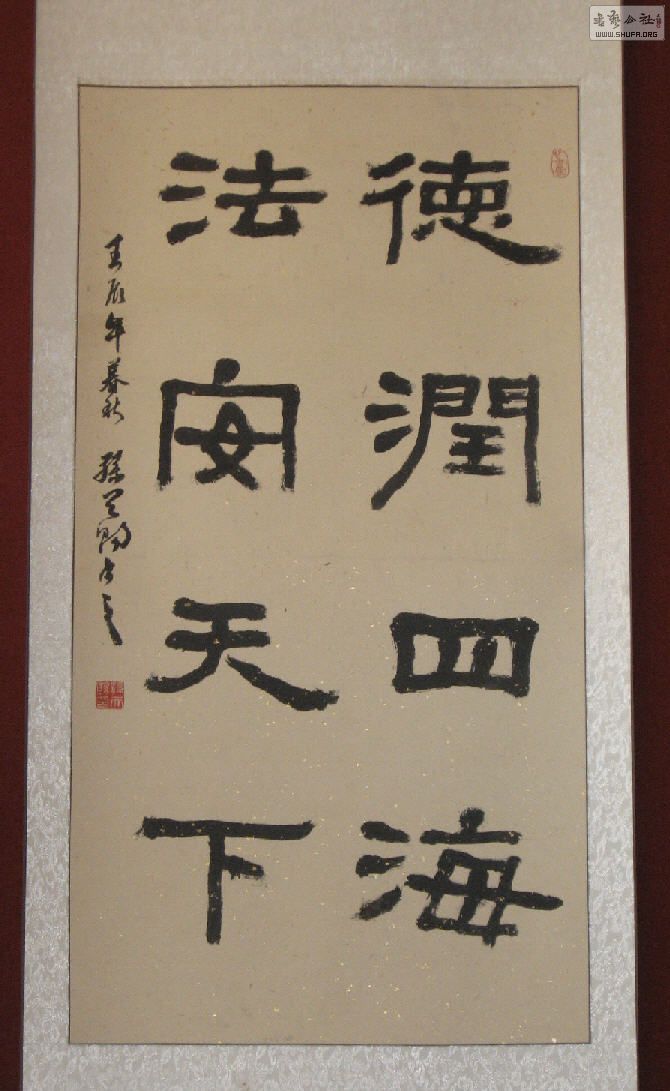 德潤四海
法安天下
壬辰年暮秋 孫
书艺公社
WWW.SHUFA.ORG